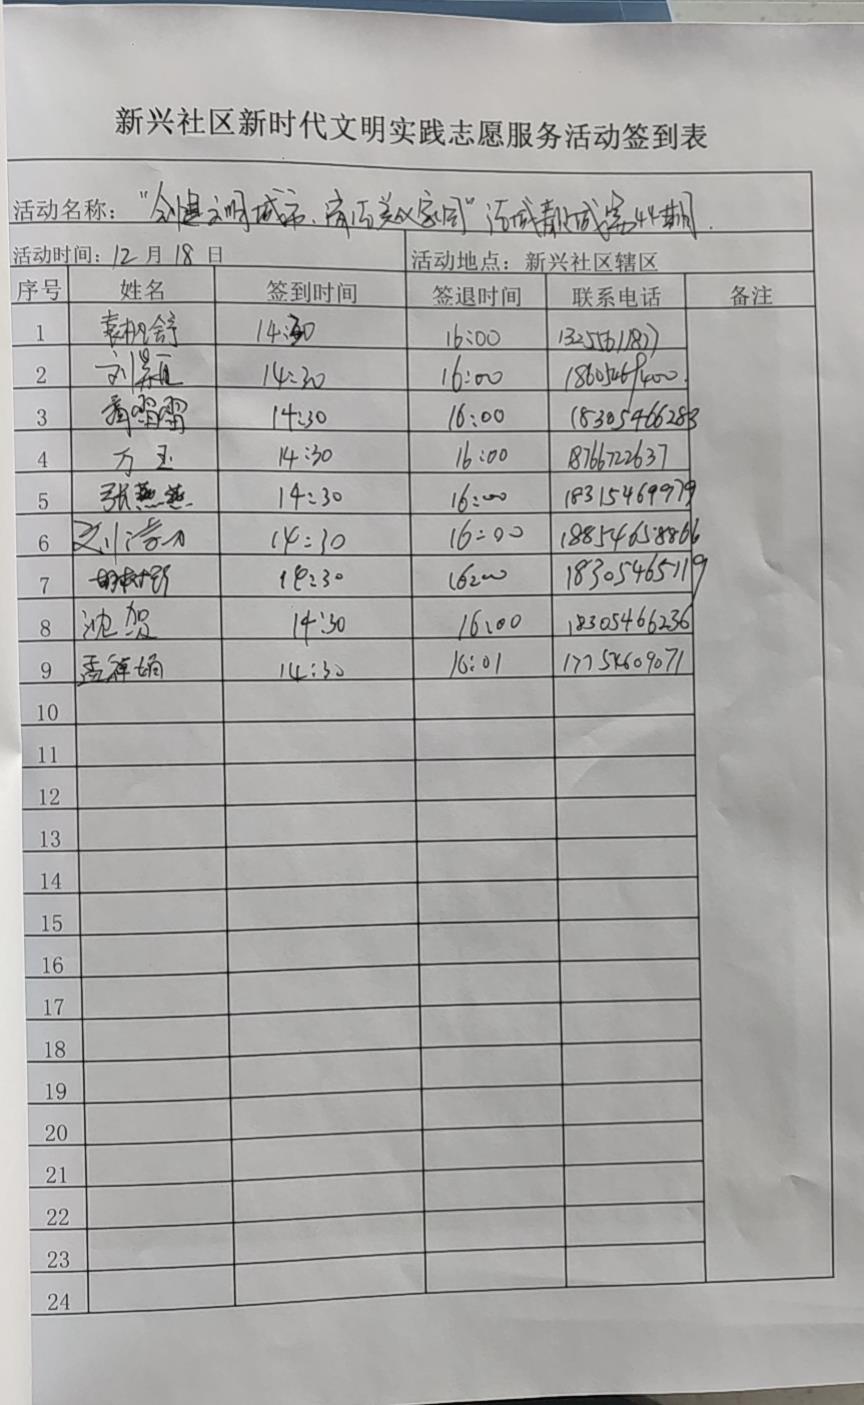 新兴社区新时代文明实践志愿服务活动签到表
活动名称：“创建文明城市、 美 家园” 第44期.
活动时间：12月18日 活动地点：新兴社区辖区
序号 姓名 签到时间 签退时间 联系电话 备注
1 14:30 16:00
2 刘 14:30 16:00
3 雷雷 14:30 16:00 18305466283
4 万玉 14:30 16:00 18766722637
5 张燕燕 14:30 16:00 18315469979
6 刘 14:30 16:00 18854658866
7 14:30 16:00 18305465119
8 沈贺 14:30 16:00 18305466236
9 孟祥娟 14:30 16:01 17754609071
10
11
12
13
14
15
16
17
18
19
20
21
22
23
24